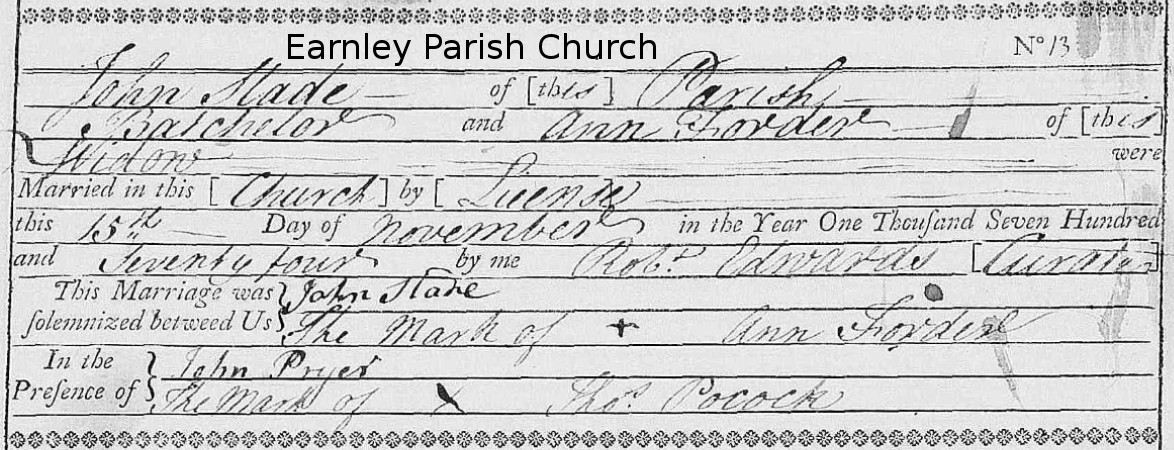 Earnley Parish Church
N° 13
John Slade of [this] Parish
Batchelor and Ann Forder of [this]
Widow were
Married in this [Church] by [License
this 15th Day of November in the Year One Thouſand Seven Hundred
and Seventy four by me Robt Edwards [Curate]
This Marriage was } John Slade
ſolemnized betweed Us } The Mark of + Ann Forder
In the } John Pryer
Preſence of } The Mark of X Thos Pocock